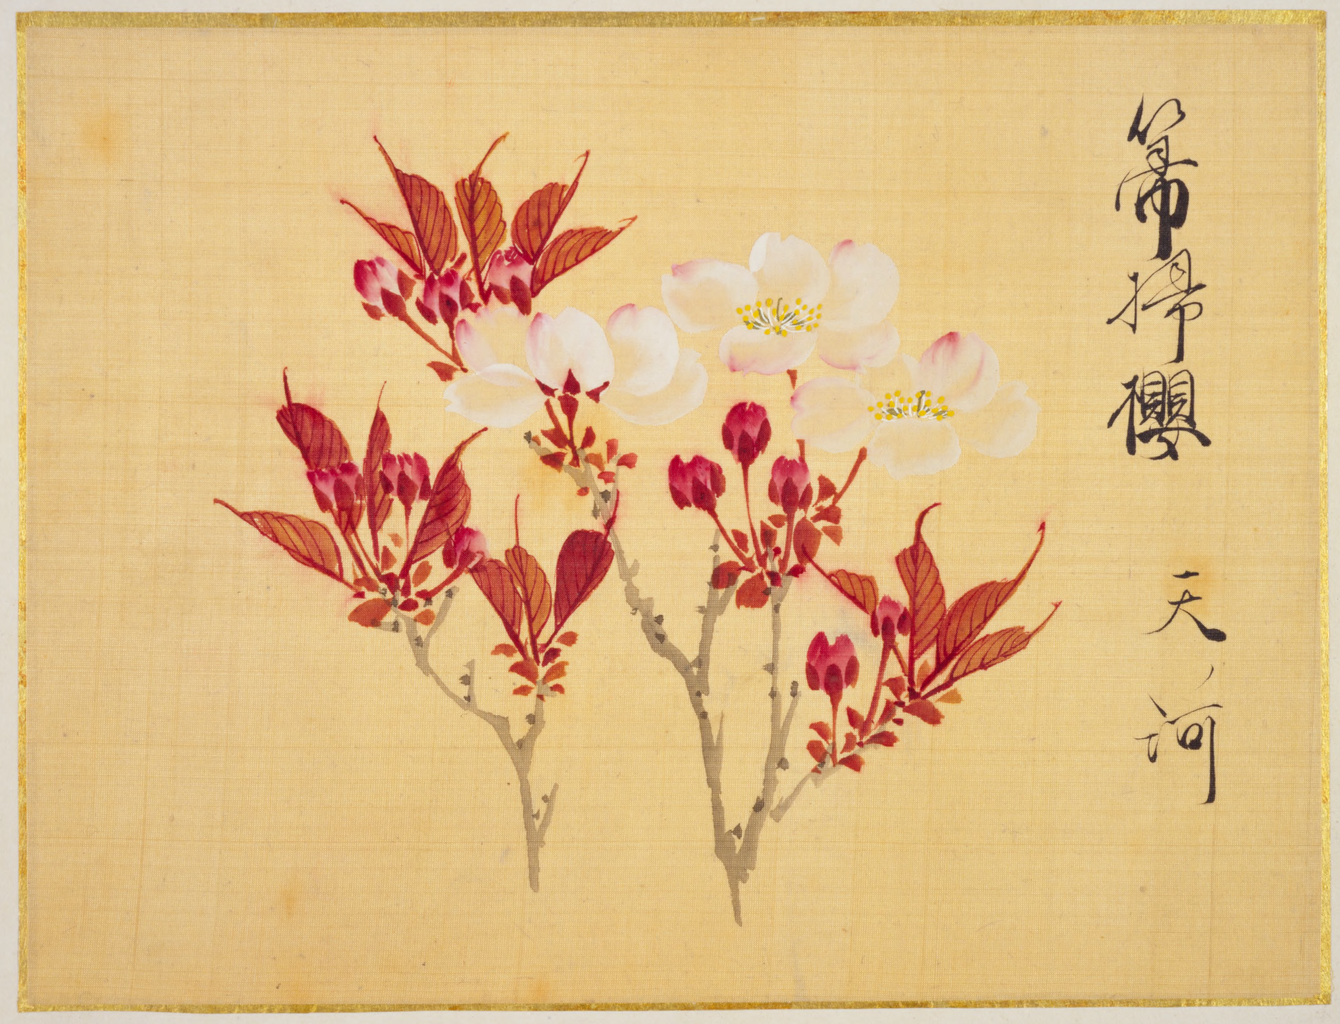 箒掃櫻
天ノ河